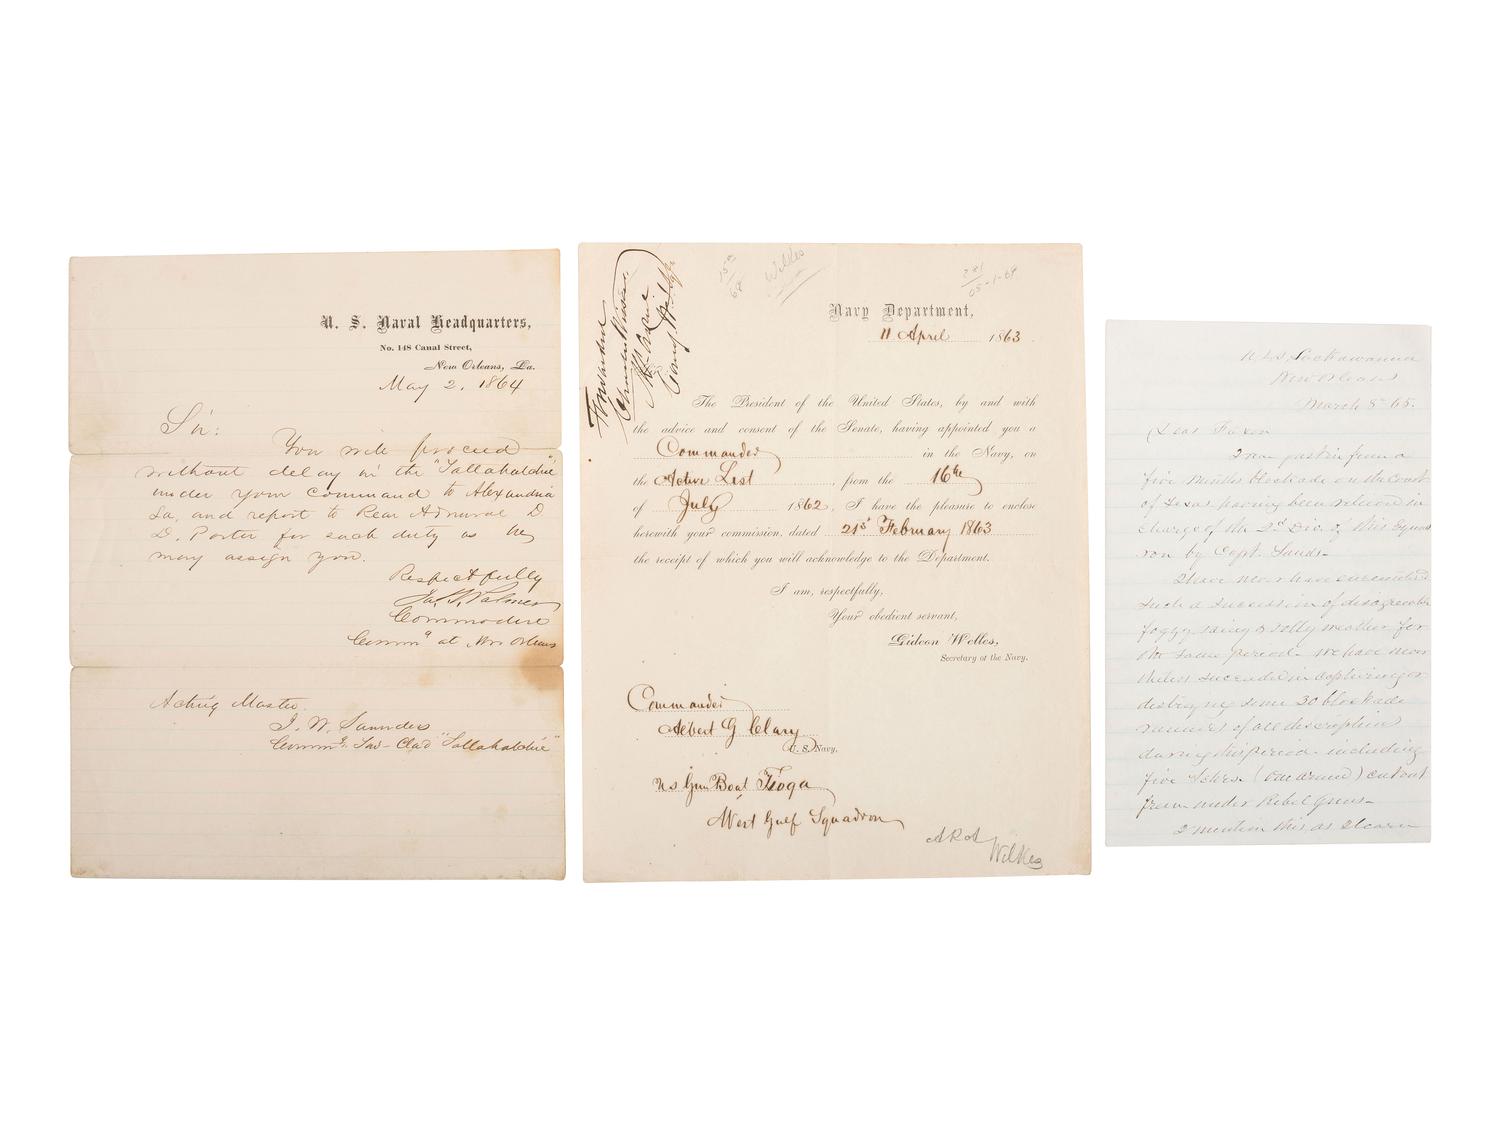 U. S. Naval Headquarters,
No. 148 Canal Street,
New Orleans, La.
May 2, 1864
Sir:
You will proceed
without delay in the "Tallahatchie"
under your command to Alexandria
La, and report to Rear Admiral D
D. Porter for such duty as he
may assign you.
Respectfully
Jas. S. Palmer
Commodore
Comm'g at New Orleans
Acting Master
J. W. Saunders
Comm'g Tin-Clad "Tallahatchie"
Forwarded
Wilkes
281
05-1-69
Navy Department,
11 April 1863
The President of the United States, by and with
the advice and consent of the Senate, having appointed you a
Commander in the Navy, on
the Active List, from the 16th
of July 1862, I have the pleasure to enclose
herewith your commission, dated 21st February 1863
the receipt of which you will acknowledge to the Department.
I am, respectfully,
Your obedient servant,
Gideon Welles,
Secretary of the Navy.
Commander
Albert G Clary
U. S. Navy.
US Gun Boat Tioga
West Gulf Squadron
Wilkes
U.S.S. Lackawanna
New Orleans
March 8 - 65.
Dear Faxon
I am just in from a
five months blockade on the coast
of Texas having been relieved in
charge of the 2d Div. of this Squad
ron by Capt. Sands -
I have never have encountered
such a succession of disagreeable
foggy rainy & squally weather for
the same period - We have never
theless succeeded in capturing or
destroying some 30 blockade
runners of all description
during this period - including
five Schrs. (one armed) cut out
from under Rebel Guns -
I mention this, as I learn